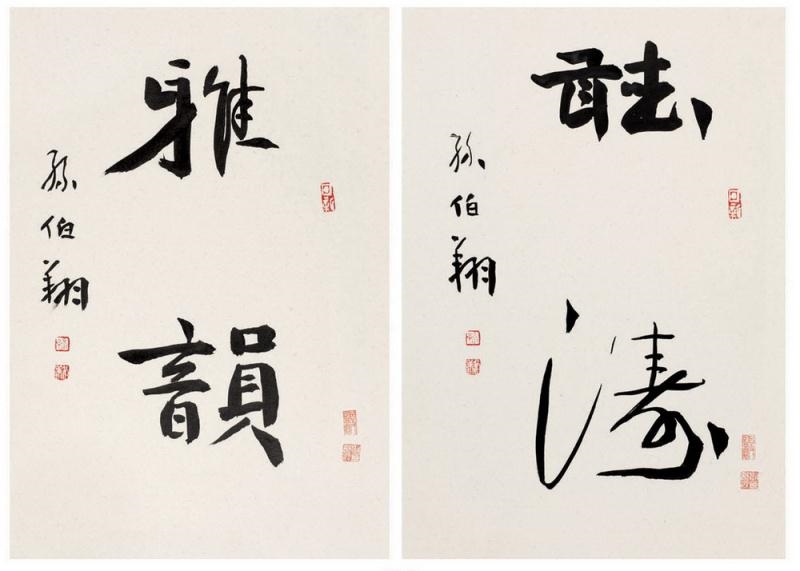 雅韻
孫伯翔
聽濤
孫伯翔